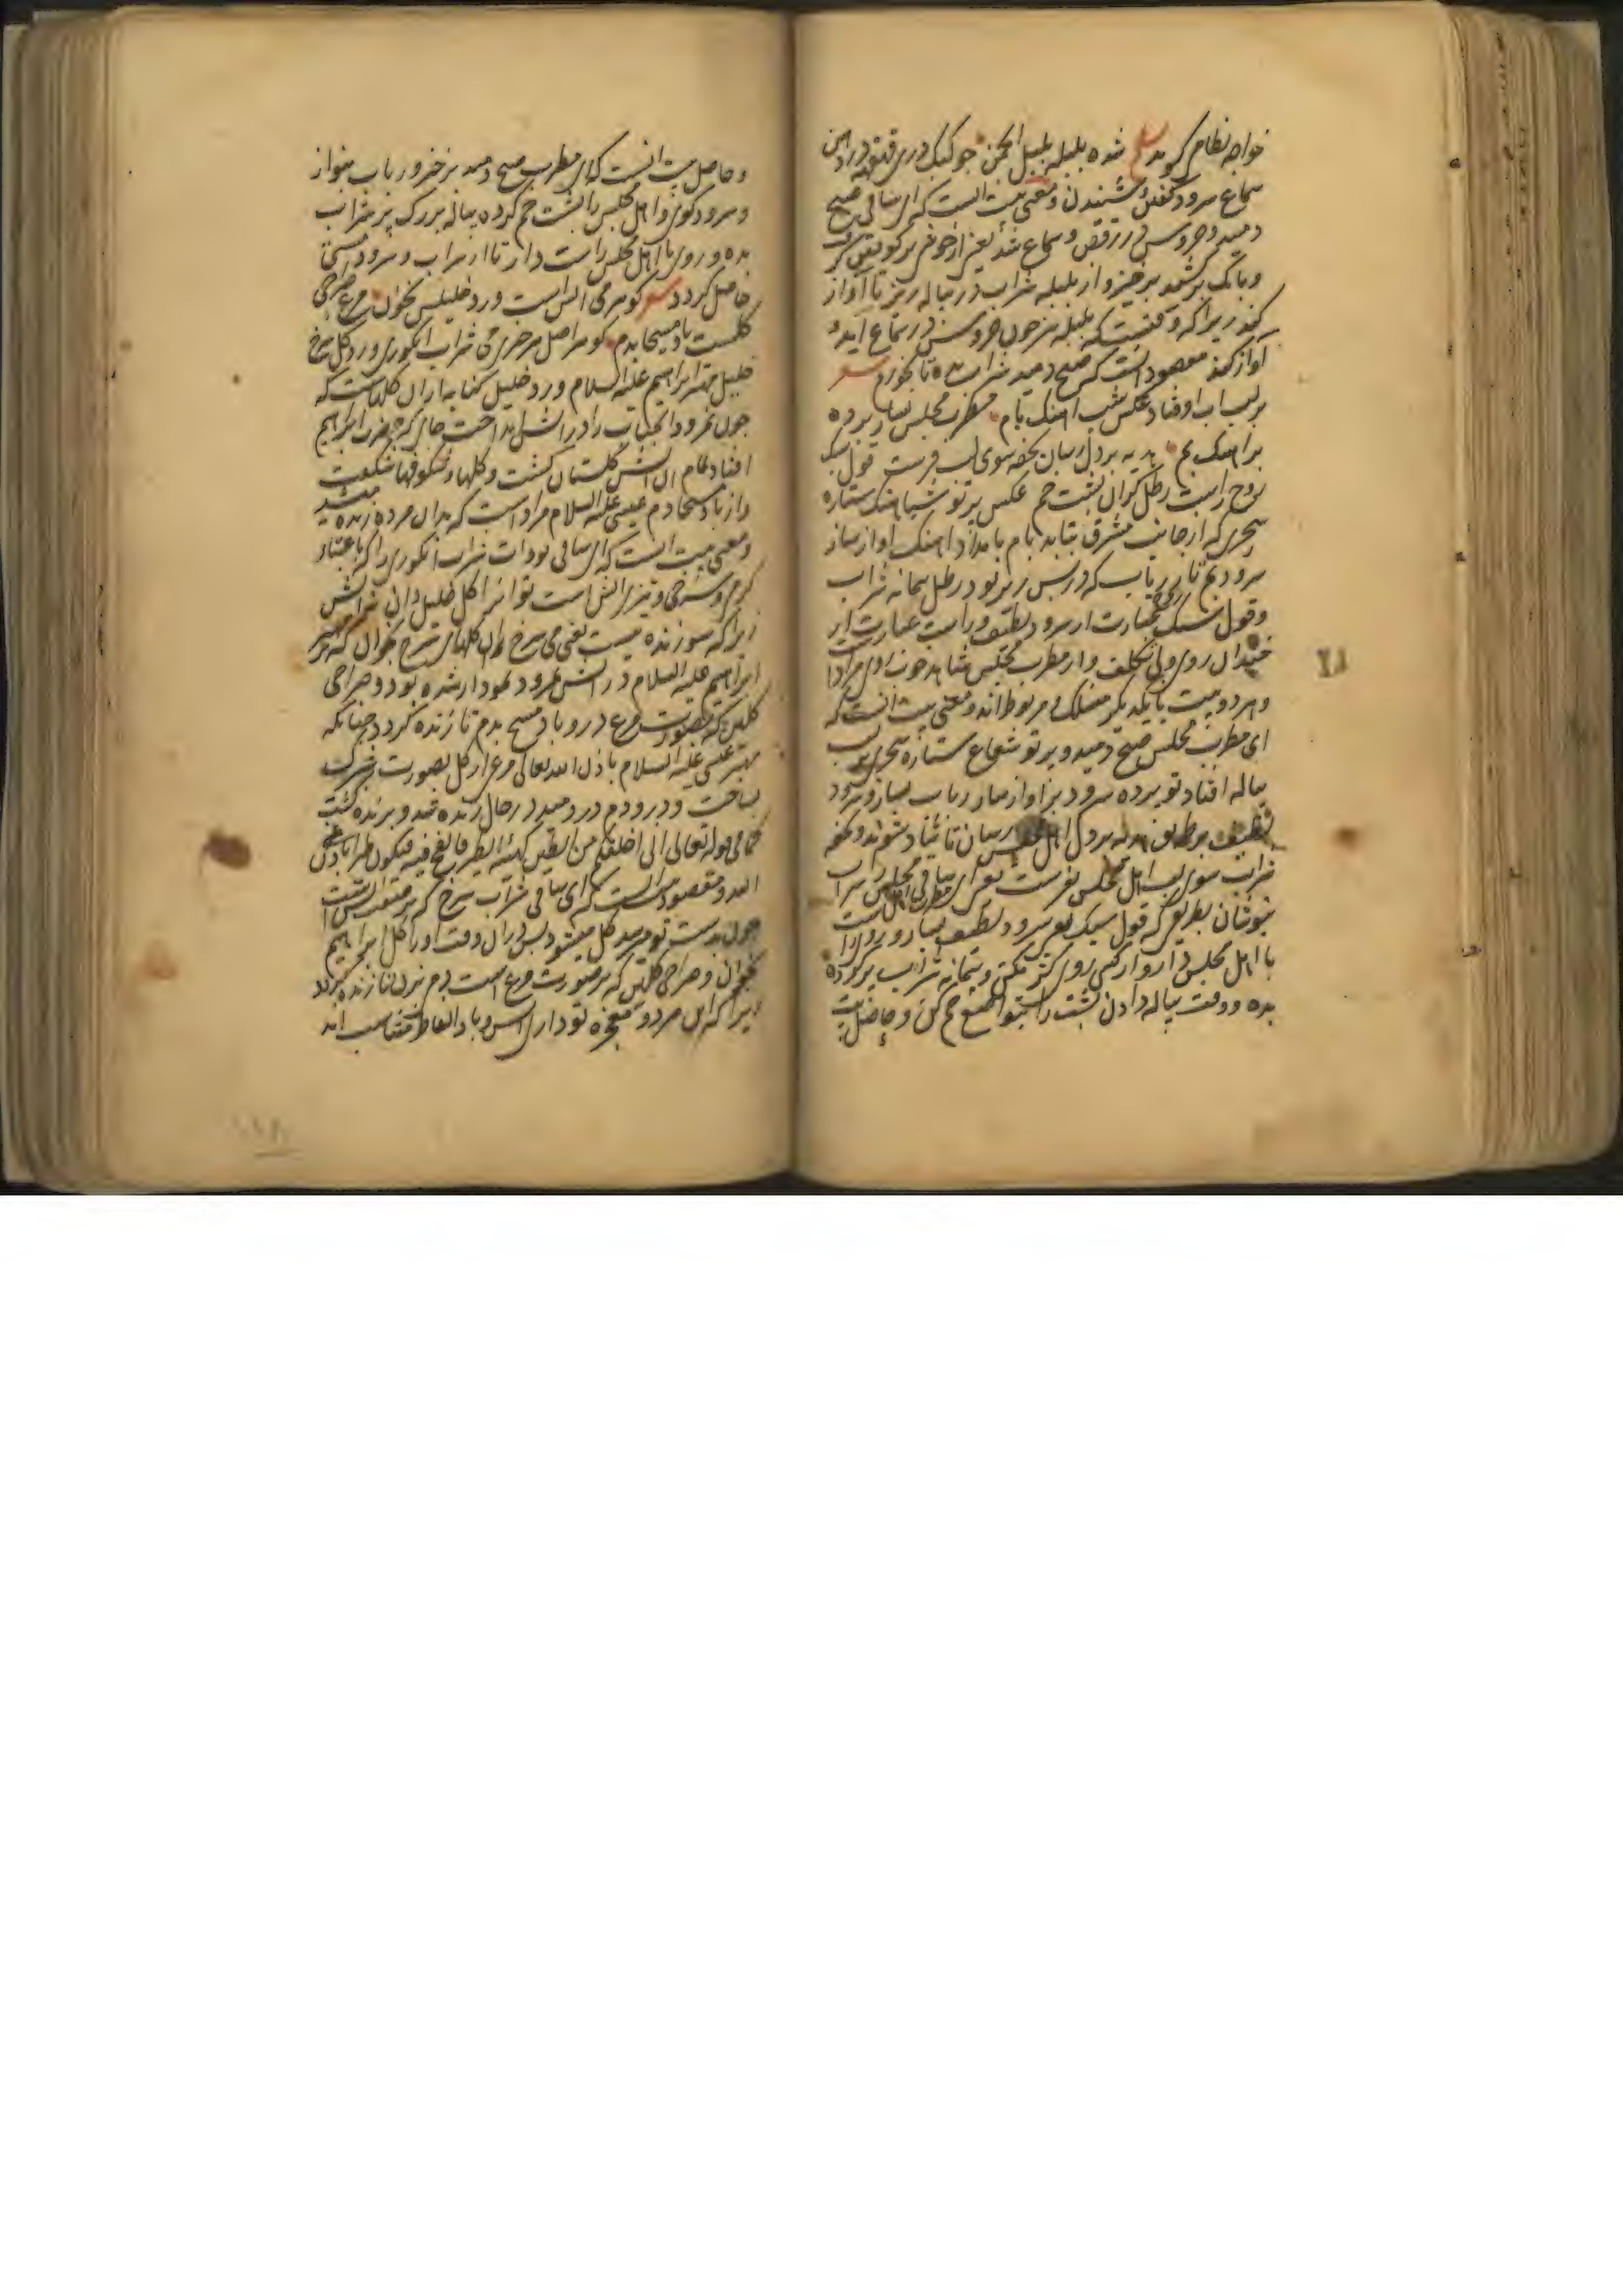 خواجه نظام گوید شده بلبله بلبل انجمن چو کبک دری قهقهه در
سماع سرود گفتن و شنیدن و معنی بیت انست که ای ساقی صبح
دمید و خروس در رقص و سماع شد یعنی از خوشی
و بانک برکشید برخیز و از بلبله شراب در پیاله ریز تا آواز
کند زیرا که وقتیست که بلبله نیز چون خروس در سماع اید و
اواز کند مقصود انست که صبح دمید شراب بده تا بخورم
بر لب اب اوفتاد عکس شب اهنک بام مطرب مجلس بساز پرده
بر اهنک بم هدیه بر دل رسان تحفه سوی لب فرست قول سبک
روح راست رطل کران پشت خم عکس پرتو شباهنک ستاره
سحری که از جانب مشرق بتابد بام بامداد اهنک اواز ساز
سرود بم تار رباب که در پس زیر بود رطل پیمانه شراب
و قول سبک عبارت از سرود لطیف و راست عبارت از
خندان روی و بی تکلف
و هر دو بیت با یکدیکر منسلک و مربوط اند و معنی بیت انست که
ای مطرب مجلس صبح دمید و پرتو شعاع ستاره سحری بر لب
پیاله افتاد تو پرده سرود بر اواز ساز رباب بساز و سرود
لطیف بر طریق هدیه بر دل اهل مجلس رسان تا شاد شوند و تحفه
شراب سوی لب اهل مجلس بفرست یعنی
بنوشان بطریقی که قول سبک یعنی سرود لطیف بساز و روی راست
با اهل مجلس دار و از کسی روی کژ مکن و پیمانه شراب پر کرده
بده و وقت پیاله دادن پشت را بتواضع خم کن و حاصل بیت
و حاصل بیت انست که ای مطرب صبح دمید برخیز و رباب بنواز
و سرود کوی و اهل مجلس را پشت خم کرده پیاله بزرک پر شراب
بده و روی با اهل مجلس راست دار تا از شراب و سرود مستی
حاصل کردد کوهر می اتش است ورد خلیلش بخوان مرغ صراحی
کلست باد مسیحا بدم کوهر اصل هر چیزی می شراب انکوری ورد کل سرخ
خلیل مهتر ابراهیم علیه السلام ورد خلیل کنایه از ان کلهاست که
چون نمرود انجناب را در اتش انداخت جای که حضرت ابراهیم
افتاد تمام ان اتش کلستان کشت و کلها و شکوفها شکفت
و از باد مسیحا دم عیسی علیه السلام مراد است که بدان مرده زنده میشد
و معنی بیت انست که ای ساقی شراب انکوری را که باعتبار
کرمی و سرخی و تیزی اتش است تو انرا کل خلیل دان نه اتش
زیرا که سوزنده نیست یعنی می سرخ را ان کلهای سرخ بخوان که بر
ابراهیم علیه السلام در اتش نمرود نمودار شده بود و صراحی
کلین که بصورت مرغ در و باد مسیح بدم تا زنده کردد چنانکه
مهتر عیسی علیه السلام باذن الله تعالی مرغ از کل بصورت شبپرک
بساخت و در و دم در دمید در حال زنده شد و پرنده کشت
کما فی قوله تعالی انی اخلق لکم من الطین کهیئة الطیر فانفخ فیه فیکون طیرا باذن
الله و مقصود انست که ای ساقی شراب سرخ که بر صفت اتش است
چون بدست تو میرسد کل میشود پس در ان وقت او را کل ابراهیم
بخوان و صراحی کلین که بر صورت مرغ است دم بزن تا زنده کردد
زیرا که این هر دو معجزه تو داری